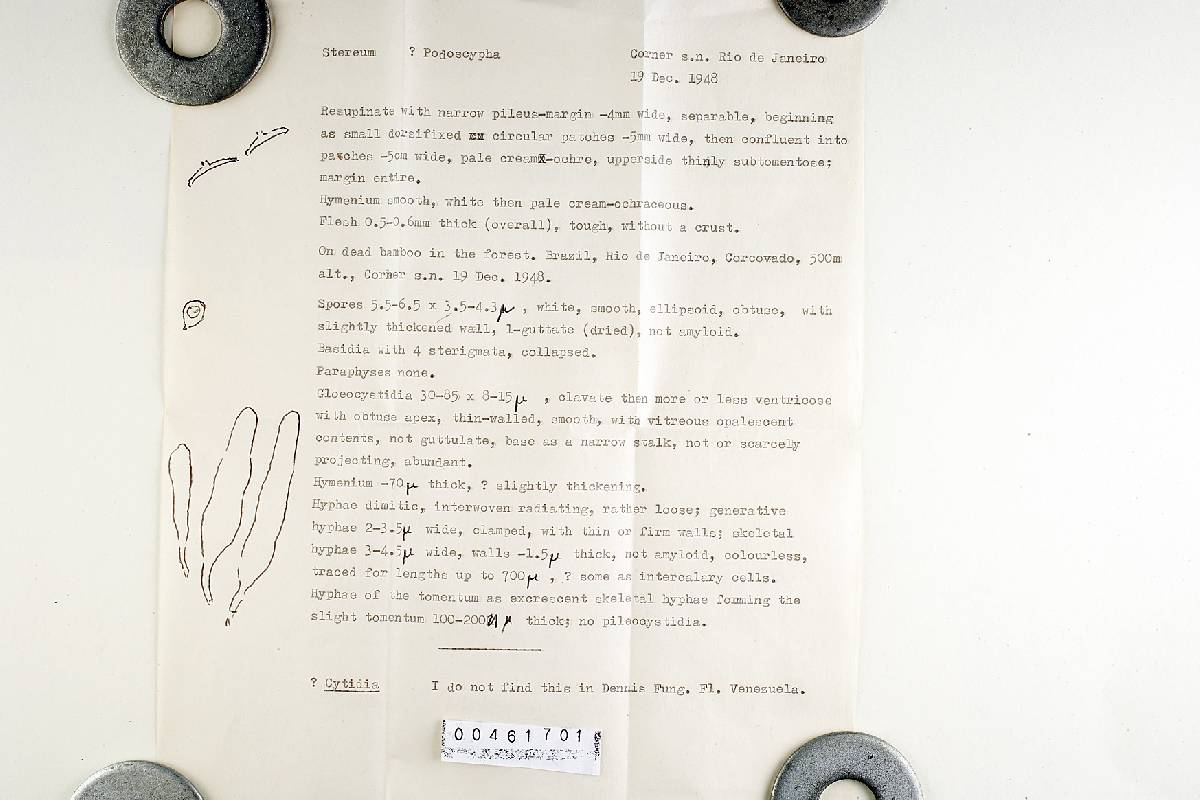 Stereum ? Podoscypha Corner s.n. Rio de Janeiro
19 Dec. 1948
Resupinate with narrow pileus-margin -4mm wide, separable, beginning
as small dorsifixed xx circular patches -5mm wide, then confluent into
patches -5cm wide, pale creamx-ochre, upperside thinly subtomentose;
margin entire.
Hymenium smooth, white then pale cream-ochraceous.
Flesh 0.5-0.6mm thick (overall), tough, without a crust.
On dead bamboo in the forest. Brazil, Rio de Janeiro, Corcovado, 500m
alt., Corner s.n. 19 Dec. 1948.
Spores 5.5-6.5 x 3.5-4.3μ , white, smooth, ellipsoid, obtuse, with
slightly thickened wall, 1-guttate (dried), not amyloid.
Basidia with 4 sterigmata, collapsed.
Paraphyses none.
Gloeocystidia 30-85 x 8-15μ , clavate then more or less ventricose
with obtuse apex, thin-walled, smooth, with vitreous opalescent
contents, not guttulate, base as a narrow stalk, not or scarcely
projecting, abundant.
Hymenium -70μ thick, ? slightly thickening.
Hyphae dimitic, interwoven radiating, rather loose; generative
hyphae 2-3.5μ wide, clamped, with thin or firm walls; skeletal
hyphae 3-4.5μ wide, walls -1.5μ thick, not amyloid, colourless,
traced for lengths up to 700μ , ? some as intercalary cells.
Hyphae of the tomentum as excrescent skeletal hyphae forming the
slight tomentum 100-200μ thick; no pileocystidia.
? Cytidia I do not find this in Dennis Fung. Fl. Venezuela.
00461701